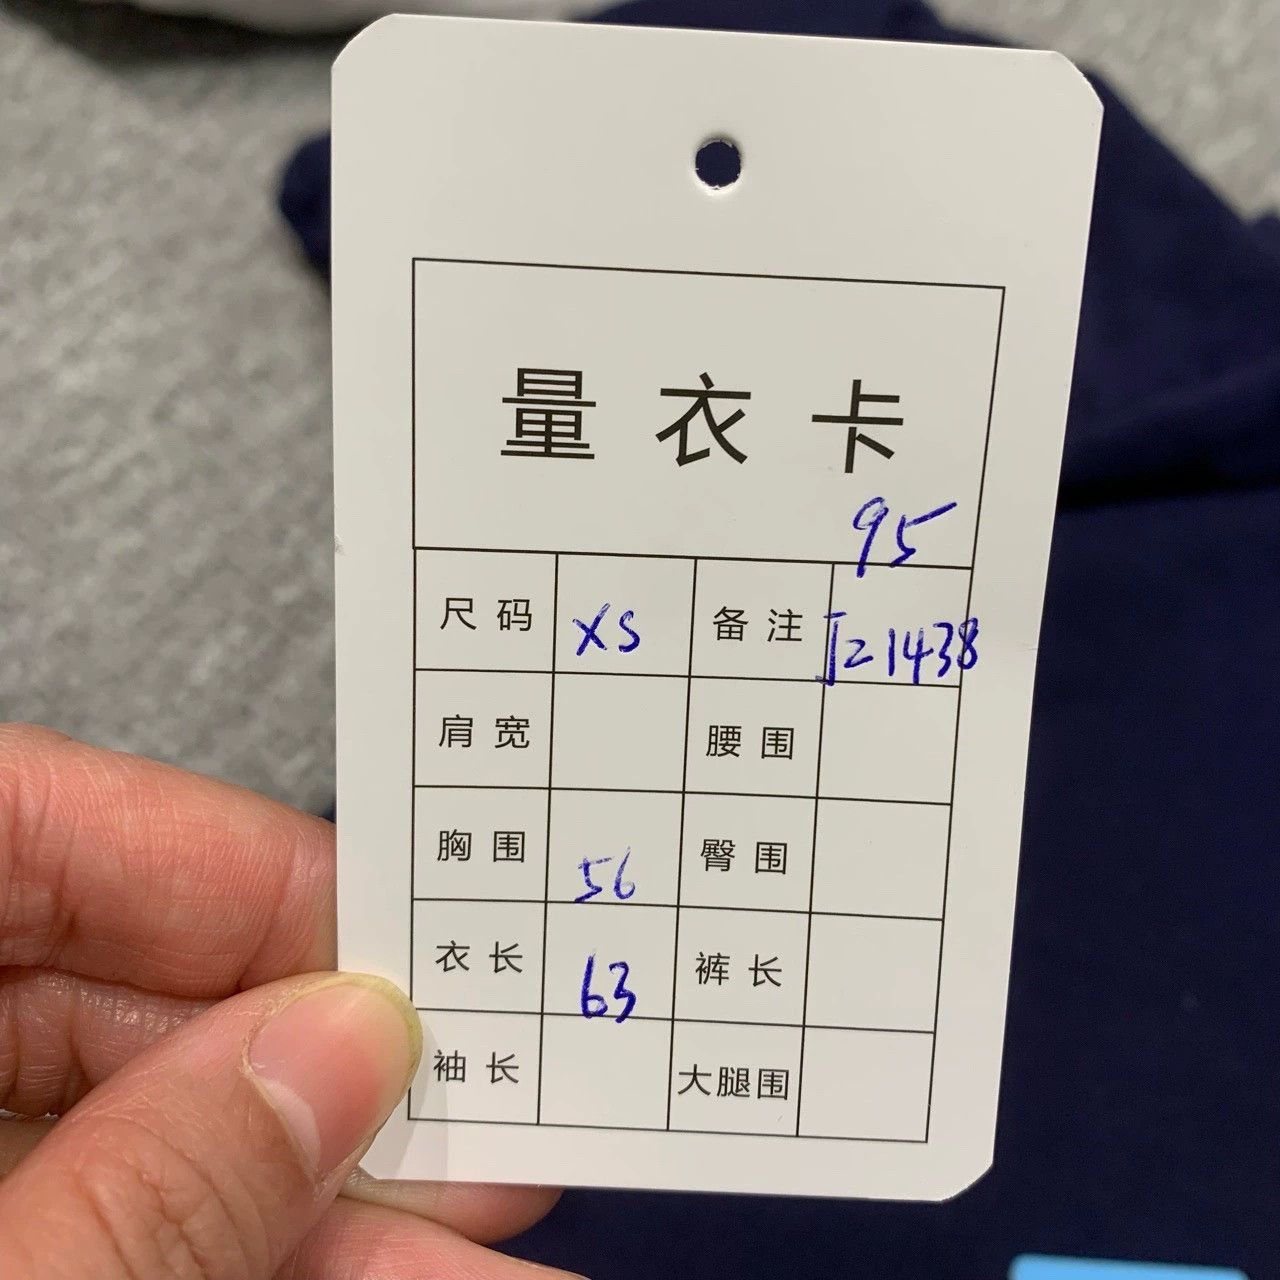 量衣卡
95
尺码 XS 备注 JZ1438
肩宽 腰围
胸围 56 臀围
衣长 63 裤长
袖长 大腿围